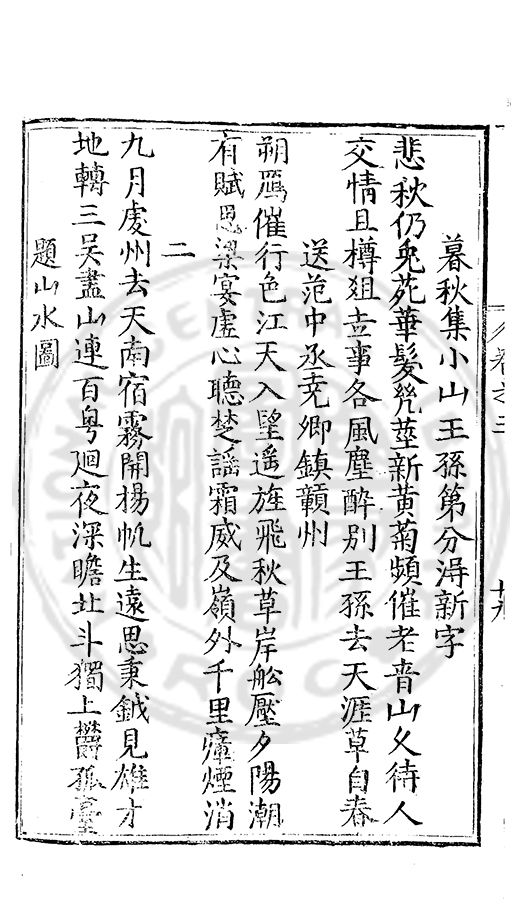 暮秋集小山王孫第分淂新字
悲秋仍兎苑華髮幾莖新黄菊頻催老音山久待人
交情且樽俎吉事各風塵醉别王孫去天涯草自春
送范中丞尭卿鎮贑州
朔鴈催行色江天入望遥旌飛秋草岸舩壓夕陽潮
有賦思梁宴虚心聽楚謡霜威及嶺外千里瘴煙消
二
九月虔州去天南宿霧開揚帆生遠思秉鉞見雄才
地轉三吴盡山連百粤廻夜深瞻北斗獨上欝孤臺
題山水圖
卷之三